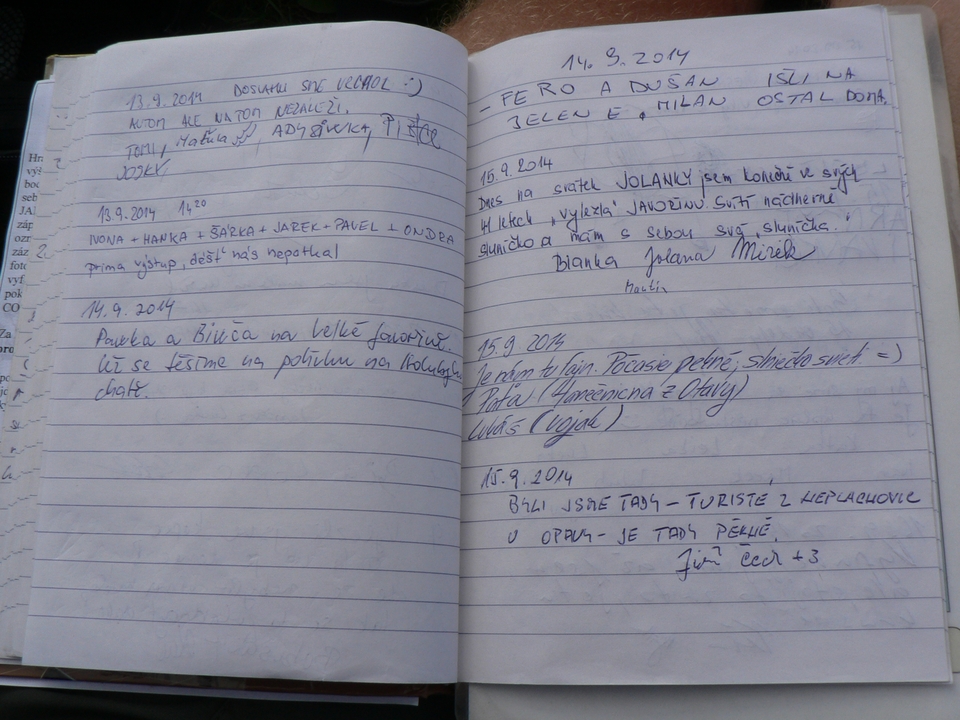 13.9.2014 DOSIAHLI SME VRCHOL :)
AUTOM ALE NA TOM NEZÁLEŽÍ.
TOMI, Maťula,
JOŽKY
13.9.2014 14²⁰
IVONA + HANKA + ŠÁRKA + JAREK + PAVEL + ONDRA
prima výstup, déšť nás nepotkal
14.9.2014
a na Velké Javořině.
Už se těšíme na polívku na Holubyho
chatě.
14.9.2014
- FERO A DUŠAN IŠLI NA
JELENE, MILAN OSTAL DOMA.
15.9.2014
Dnes na svátek JOLANKY jsem konečně ve svých
letech „vylezla" JAVOŘINU. Svítí nádherně
sluníčko a mám s sebou svá „sluníčka."
Blanka Jolana Mirek
Martin
15.9.2014
Je nám tu fajn. Počasie pekné, slniečko svieti =)
Paťa (z Otavy)
Lukáš (vojak)
15.9.2014
BYLI JSME TADY - TURISTÉ Z NEPLACHOVIC
U OPAVY - JE TADY PĚKNĚ.
Jiří Čech +3